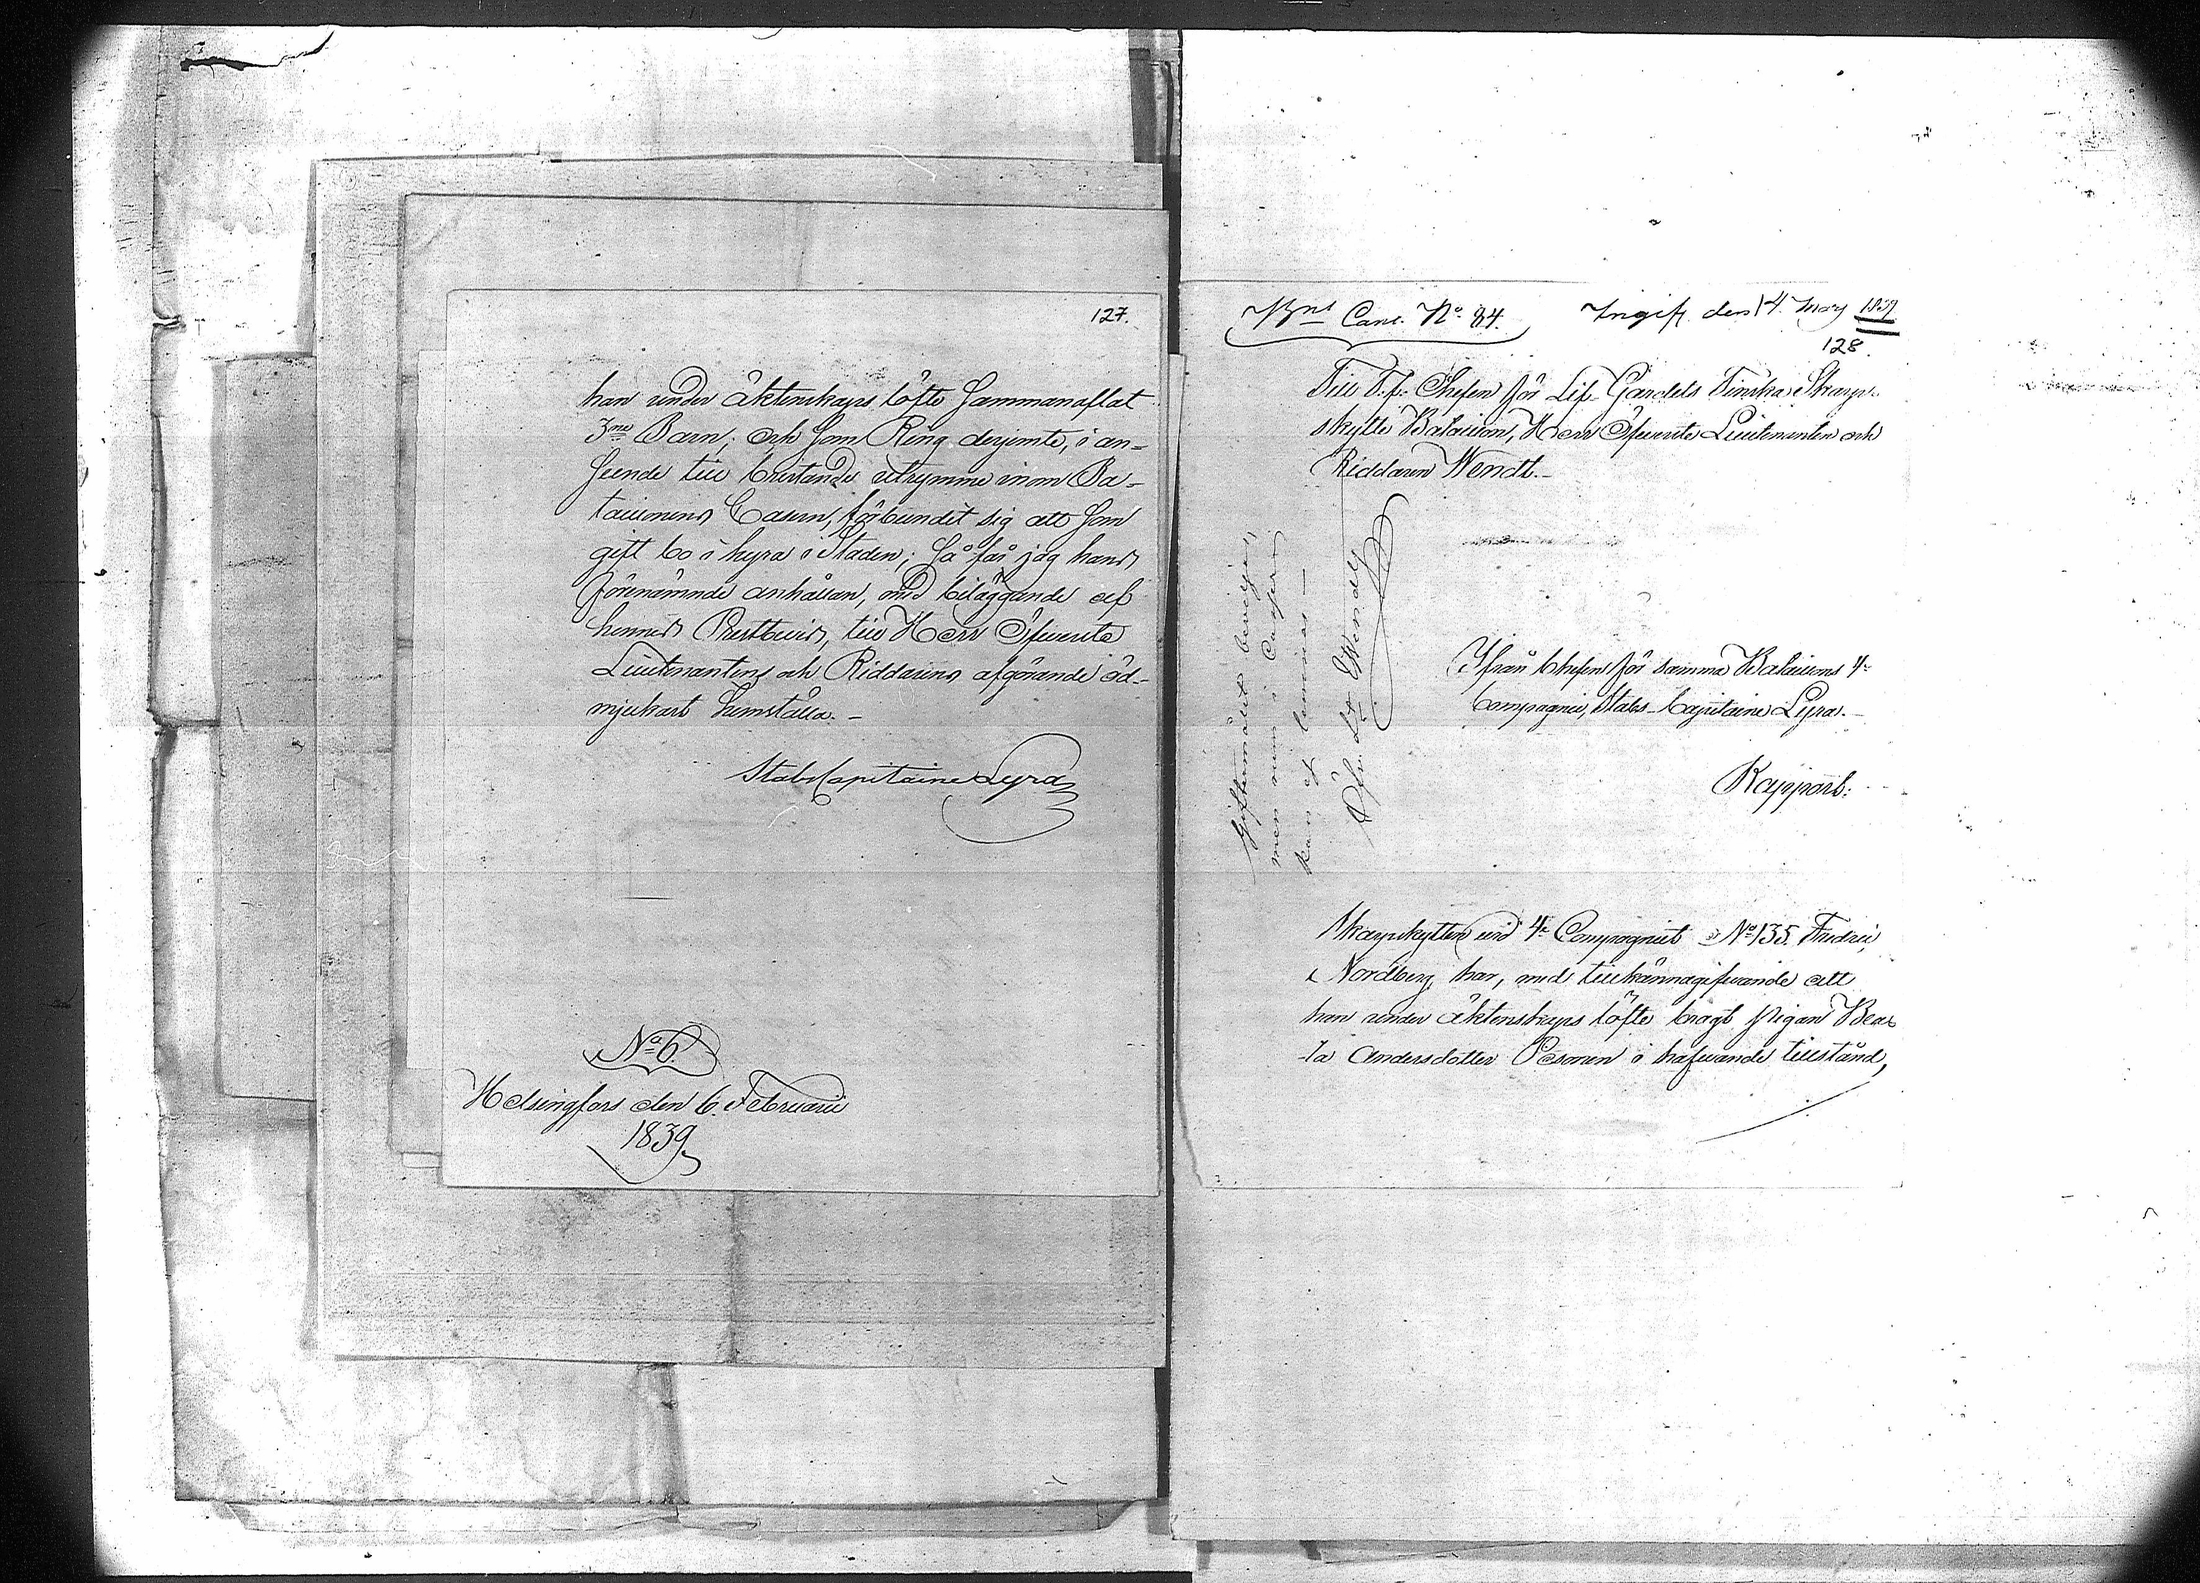 127.
han under äktenskaps löfte sammanaflat
3ne Barn; och som Ring derjemte, i an-
seende till bristande utrymme inom Ba-
taillonens Casern, förbundit sig att som
gift bo i hyra i Staden; så får jag hans
förenämnde anhållan, med biläggande af
hennes Prestbevis, till Herr Öfverste
Lieutenantens och Riddarens afgörande öd-
mjukast hemställa. -
StabsCapitaine Lyra
No 6.
Helsingfors den 6. Februarii
1839.
Bns Canc. No. 84.
Ingif. den 14. May 1839
128.
Till T.f. Chefen för Lif-Gardets Finska Skarp-
skytte Bataillon, Herr Öfverste Lieutenanten och
Riddaren Wendt. -
Giftermålet beviljes,
men rum i Casern
kan ej lemnas -
Öfv. Lt. Wendt
Ifrån Chefen för samma Bataillons 4e
Compagnie, Stabs-Capitaine Lyra. -
Rapport:
Skarpskytten vid 4e Compagniet No 135. Fredric
Nordberg har, med tillkännagifvande att
han under äktenskaps löfte bragt pigan Bea-
ta Andersdotter Pesonen i hafvande tillstånd,